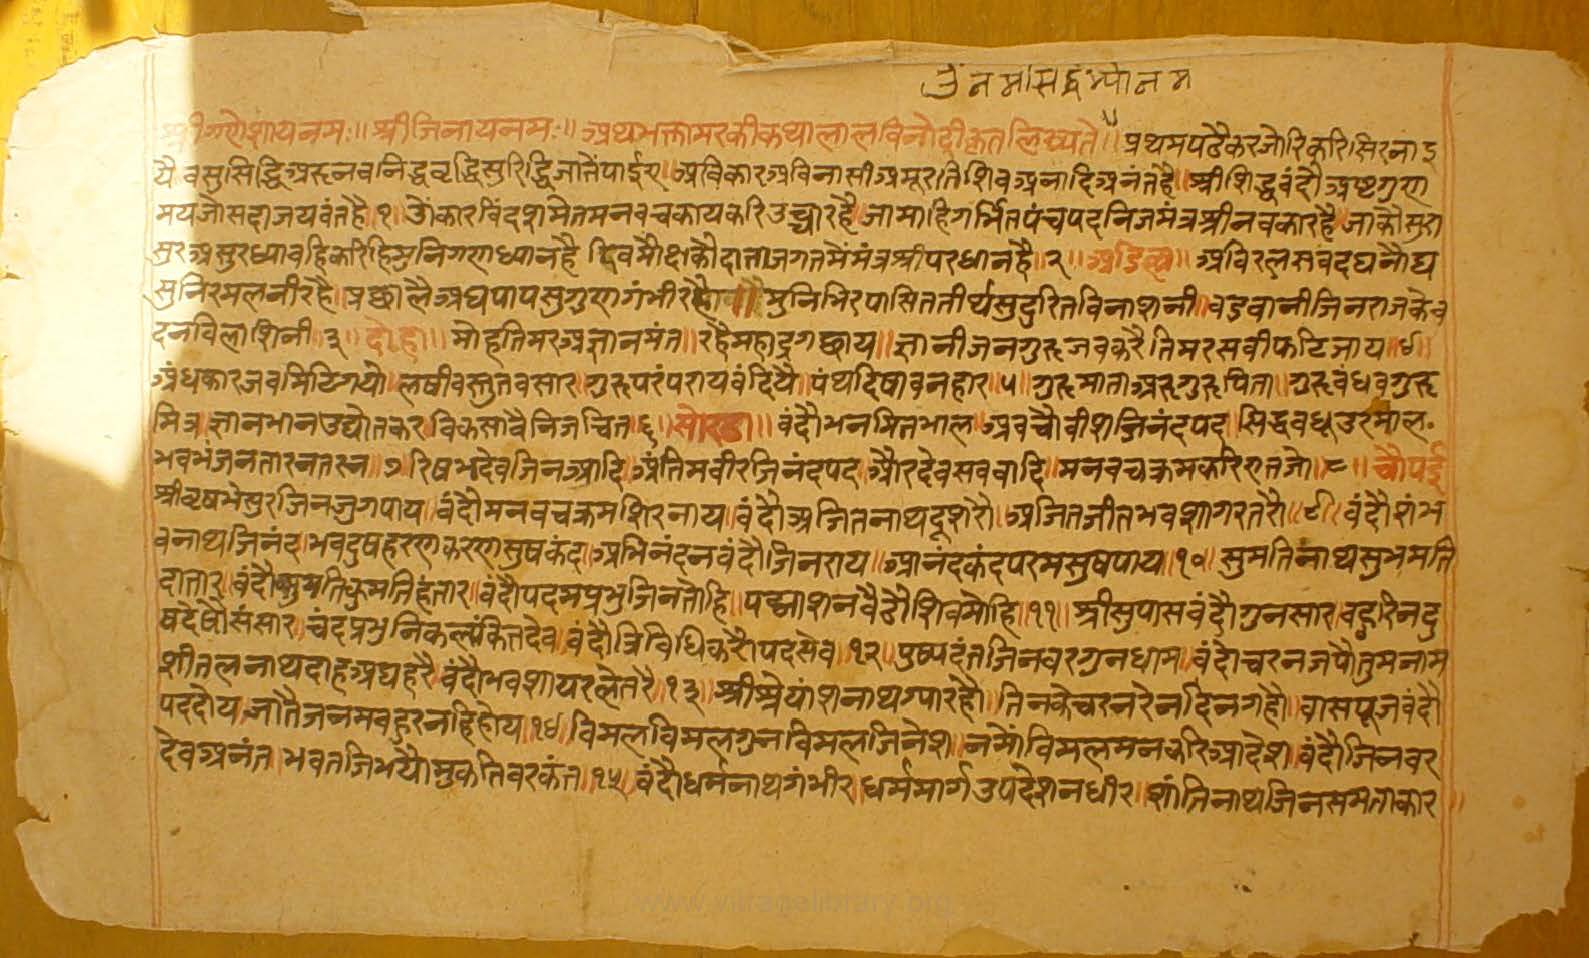 उंनमःसिद्धेभ्योनम
श्रीगणेशायनमः॥ श्रीजिनायनमः॥ अथभक्तामरकीकथालालविनोदीकृतलिख्यते॥ प्रथमपढैकरजोरिकरिसिरनाइ
यै वसुसिद्धिअरुनवनिद्धवृद्धिसुरिद्धिजातेंपाईए॥अविकारअविनासीअमूरतिशिवअनादिअनंतहै॥श्रीशिद्धवंदौअष्टगुण
मयजौसदाजयवंतहै॥१॥ उोंकारविंदशमेतमनवचकायकरिउच्चारहै॥जामाहिगर्भितपंचपदनिजमंत्रश्रीनवकारहै॥जाकौसुरा
सुरअसुरध्यावहिकरिहिमुनिगणध्यानहै॥दिवमौक्षकौदाताजगतमैंमंत्रश्रीपरधानहै॥२॥अडिल्ल॥ अविरलसवदघनौघ
सुनिरमलनीरहै॥प्रछालैअघपापसुगुणगंभीरहै॥मुनिभिरपासिततीर्थसुदुरितविनाशनी॥वडवानीजिनराजकेव
दनविलाशिनी॥३॥ दोहा॥ मोहतिमरअज्ञानमंत॥रहैमहाद्रगछाय॥ज्ञानीजनगुरूजवकरै॥तिमरसवीफटिजाय॥४॥
अंधकारजवमिटिगयो॥लषीवस्तुतवसार॥गुरूपरंपरायवंदियै॥पंथदिषावनहार॥५॥गुरूमाताअरुगुरूपिता॥गुरूवंधवगुरू
मित्र॥ज्ञानभानउद्योतकर॥विकसावैनिजचित॥६॥सोरठा॥ वंदौभनमितभाल॥अवचौवीशजिनंदपद॥सिद्धवधूउरमाल॰
भवभंजनतारनतरन॥७॥रिषभदेवजिनआदि॥अंतिमवीरजिनंदपद॥औरदेवसववादि॥मनवचक्रमकरि जो॥८॥चौपई
श्रीवृषभेसुरजिनजुगपाय॥वंदौमनवचक्रमशिरनाय॥वंदौअजितनाथदूशरौ॥अजितजीतभवशागरतरौ॥९॥वंदौशंभ
वनाथजिनंद॥भवदुषहरणकरणसुषकंद॥अभिनंदनवंदौजिनराय॥आनंदकंदपरमसुषपाय॥१०॥सुमतिनाथसुभमति
दातार॥वंदौसुमतिकुमतिहंतार॥वंदौपदमप्रभुजिनतोहि॥पद्माशनवैठौशिवमोहि॥११॥श्रीसुपासवंदौगुनसार॥वहुरिनदु
षदेषौसंसार॥चंदप्रभुनिकलंकितदेव॥वंदौत्रिविधिकरौपदसेव॥१२॥पुष्पदंतजिनवरगुनधाम॥वंदोचरनजपौतुमनाम
शीतलनाथदाहअघहरै॥वंदौभवशायरलेतरै॥१३॥श्रीश्रेयांशनाथग्पारहौ॥तिनकेचरनरेनदिनगहौ॥वासपूजवंदौ
पददौय॥जातैजनमवहुरनहिहोय॥१४॥विमलविमलगुनविमलजिनेश॥नमौंविमलमनकरिआदेश॥वंदौजिनवर
देवअनंत॥भवतजिभयौमुकतिवरकंत॥१५॥वंदौधर्मनाथगंभीर॥धर्ममार्गउपदेशनधीर॥शांतिनाथजिनसमताकार॥
www.vitragelibrary.org